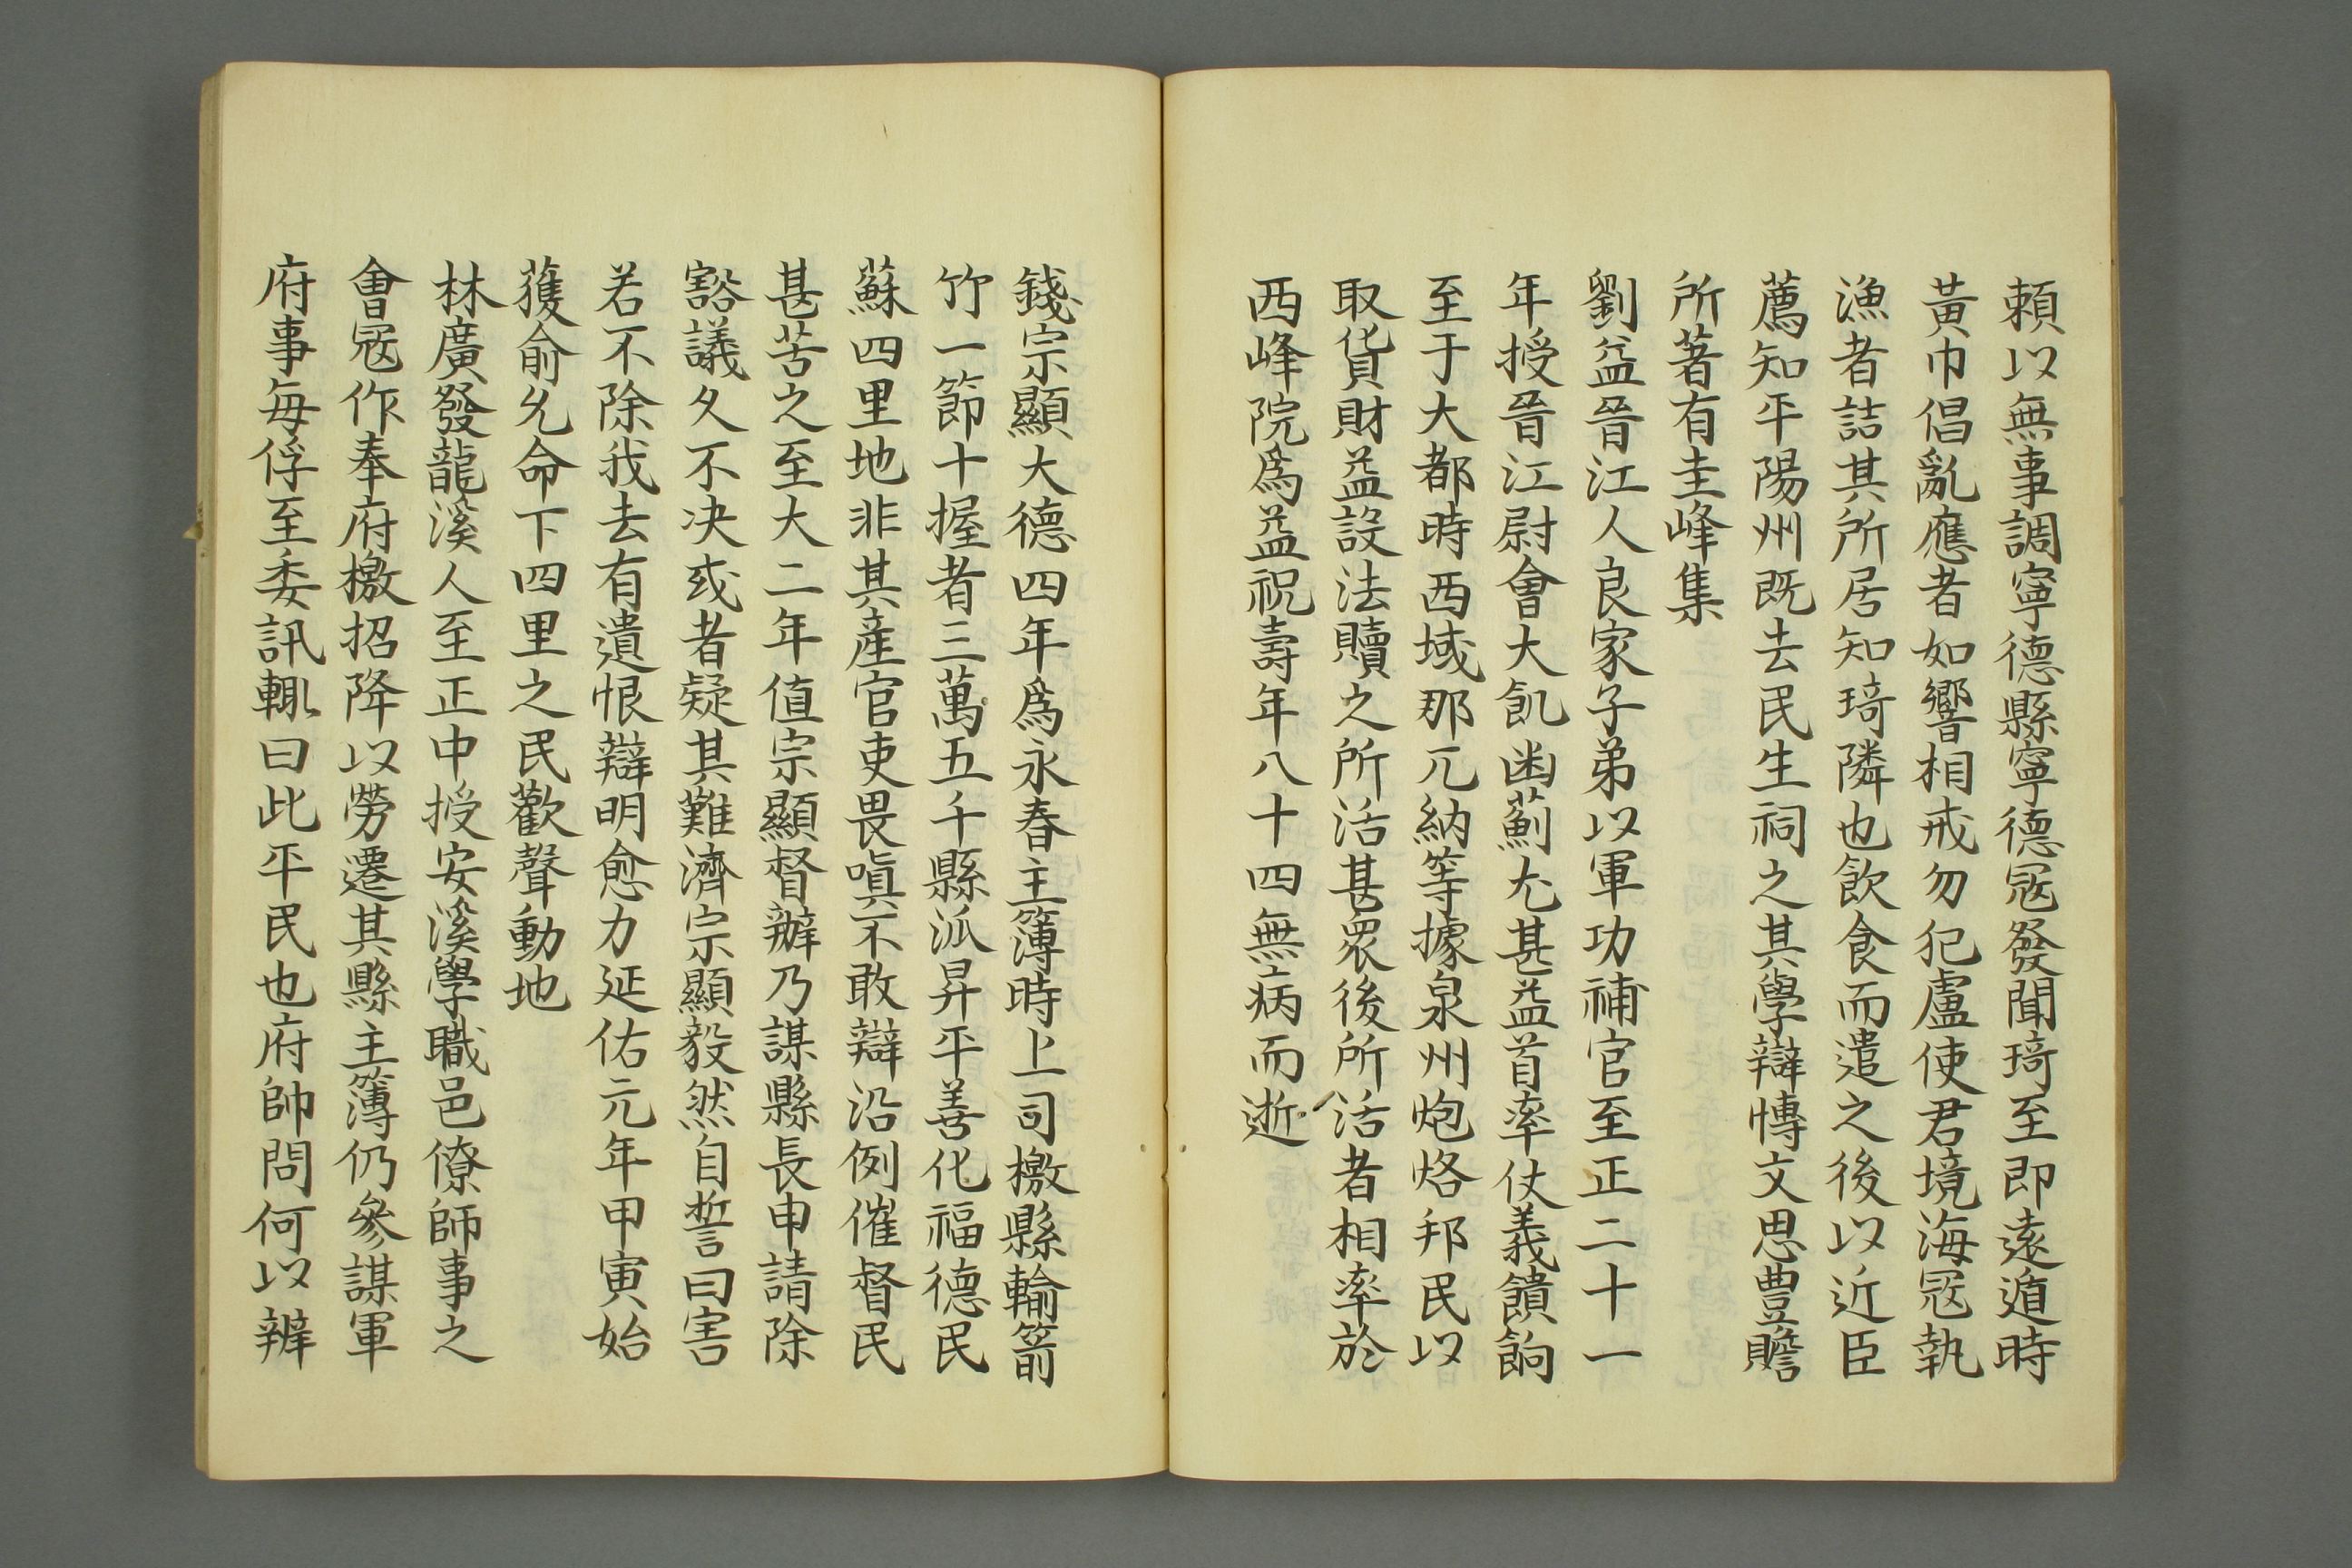 頼以無事調寧德縣寧德冦發聞琦至即遠遁時
黃巾倡亂應者如響相戒勿犯盧使君境海冦執
漁者詰其所居知琦隣也飲食而遣之後以近臣
薦知平陽州既去民生祠之其學辯愽文思豊贍
所著有圭峰集
劉益晉江人良家子弟以軍功補官至正二十一
年授晉江尉會大飢凶薊尤甚益首率仗義饋餉
至于大都時西域那兀納等據泉州炮烙邦民以
取貨財益設法贖之所活甚衆後所活者相率於
西峰院爲益祝壽年八十四無病而逝
錢宗顯大德四年爲永春主簿時上司檄縣輸箭
竹一節十握者三萬五千縣派昇平善化福德民
蘇四里地非其產官吏畏嗔不敢辯沿例催督民
甚苦之至大二年值宗顯督辦乃謀縣長申請除
豁議久不决或者疑其難濟宗顯毅然自誓曰害
若不除我去有遺恨辯明愈力延佑元年甲寅始
獲俞允命下四里之民歡聲動地
林廣發龍溪人至正中授安溪學職邑僚師事之
會冦作奉府檄招降以勞遷其縣主簿仍參謀軍
府事每俘至委訊輙曰此平民也府帥問何以辨